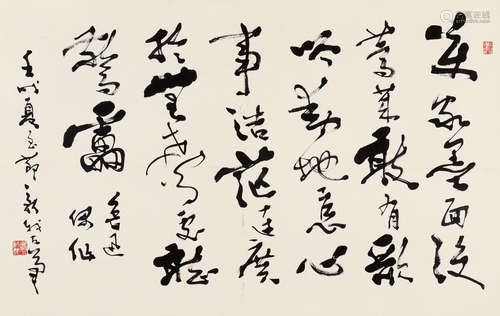 萬家墨面没
蒿莱敢有歌
吟動地哀心
事浩茫連廣
於無聲處聽
驚雷
魯迅
壬戌夏